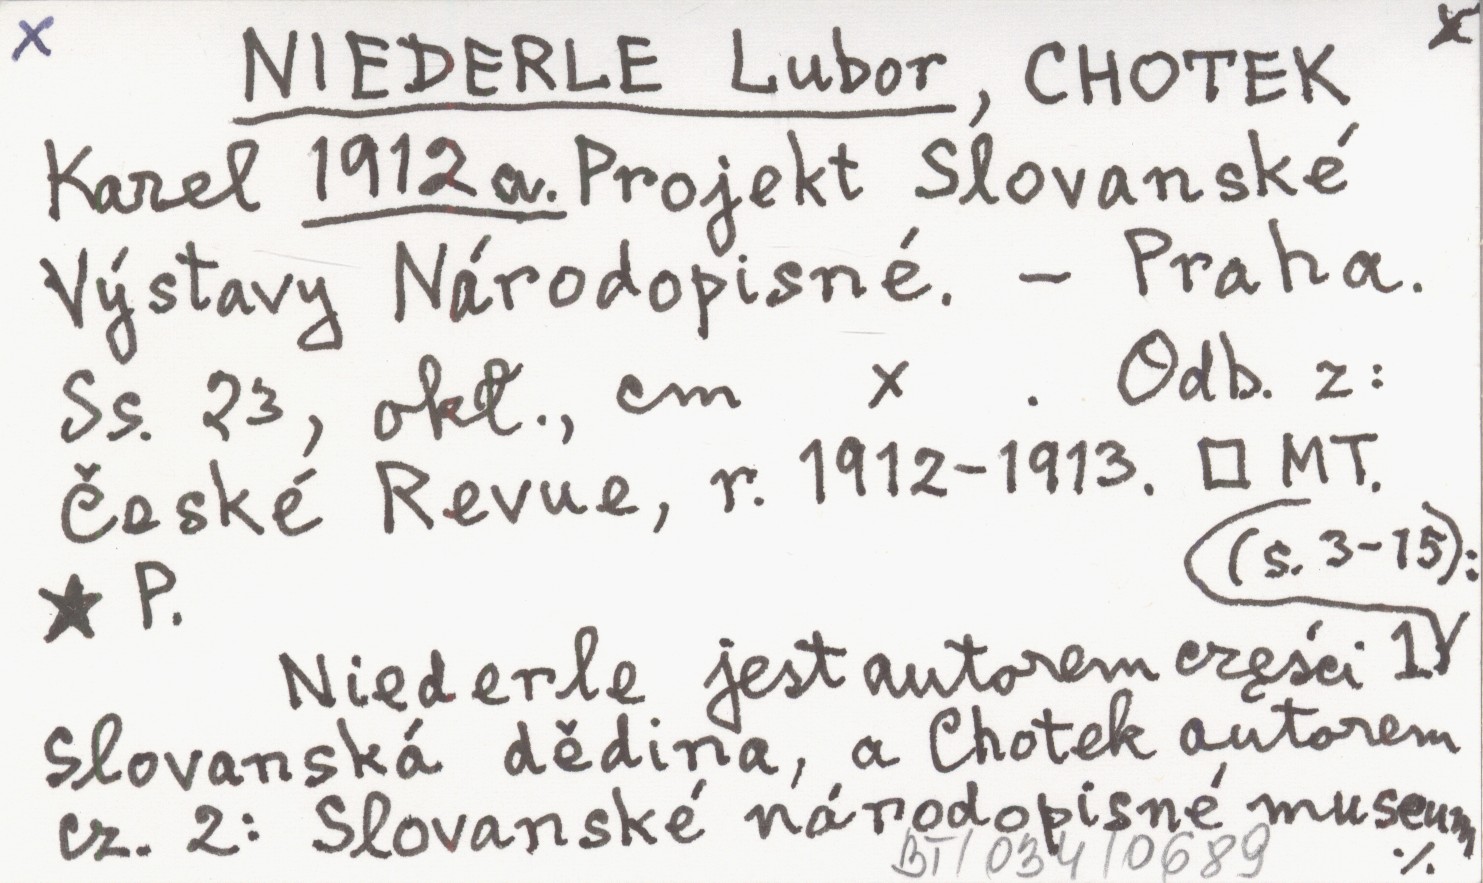 x x
NIEDERLE Lubor, CHOTEK
Karel 1912a. Projekt Slovanské
Výstavy Národopisné. – Praha.
Ss. 23, okł., cm x . Odb. z:
České Revue, r. 1912-1913. □ MT.
(s. 3-15):
★ P.
Niederle jest autorem części 1
Slovanská dědina, a Chotek autorem
cz. 2: Slovanské národopisné museum
BT/034/0689 ./.